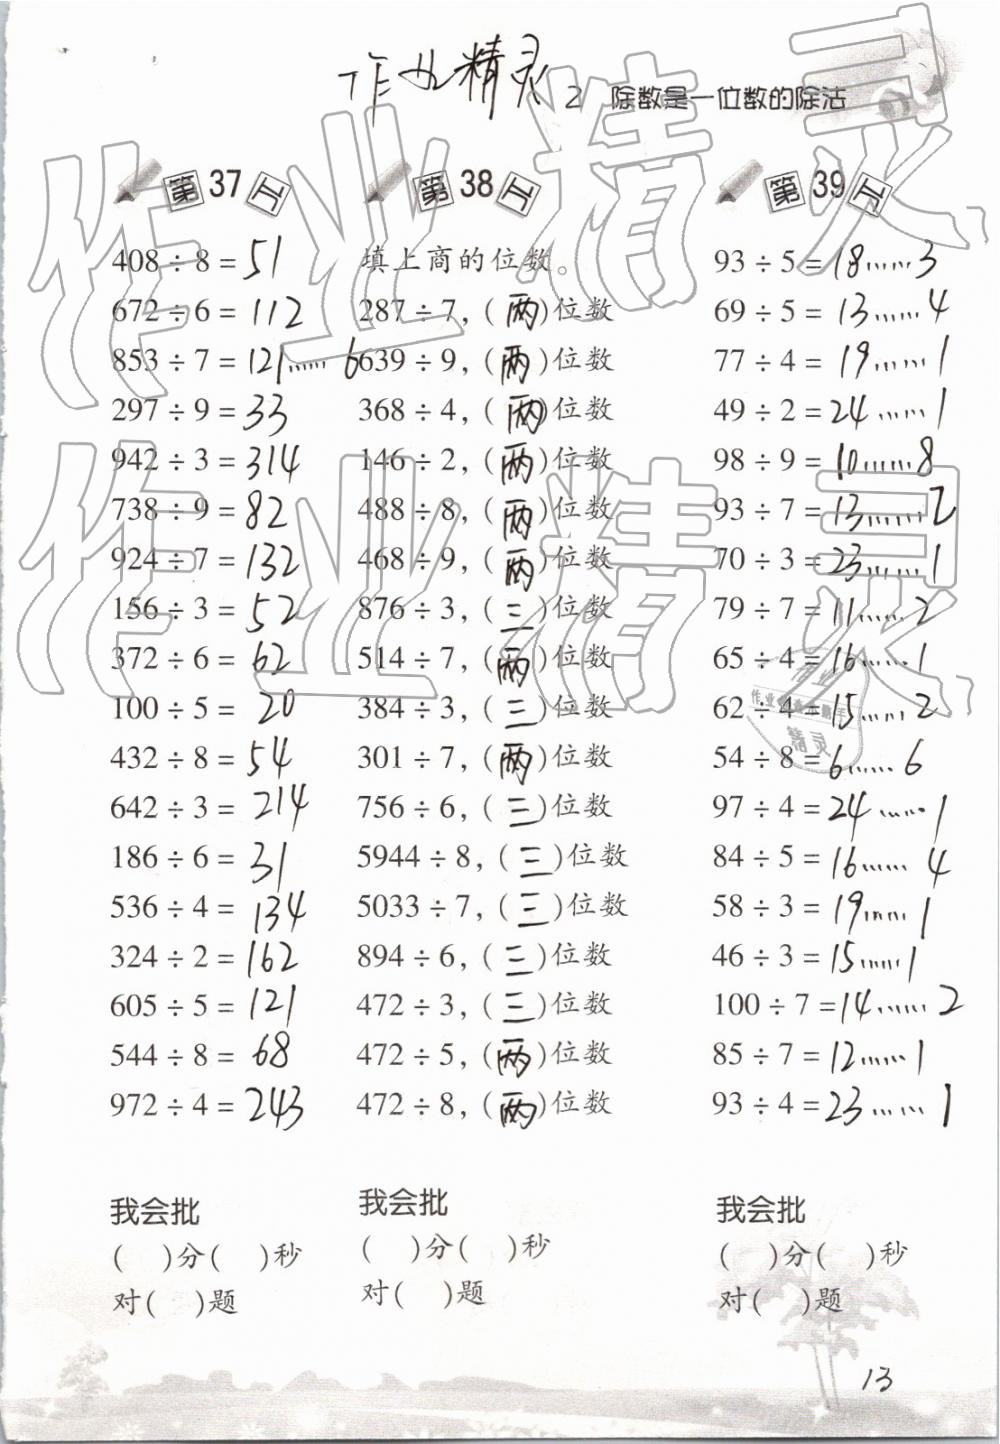 作业精灵
2 除数是一位数的除法
第37工
408÷8=51
672÷6=112
853÷7=121……6
297÷9=33
942÷3=314
738÷9=82
924÷7=132
156÷3=52
372÷6=62
100÷5=20
432÷8=54
642÷3=214
186÷6=31
536÷4=134
324÷2=162
605÷5=121
544÷8=68
972÷4=243
我会批
( )分( )秒
对( )题
第38工
填上商的位数。
287÷7,(两)位数
639÷9,(两)位数
368÷4,(两)位数
146÷2,(两)位数
488÷8,(两)位数
468÷9,(两)位数
876÷3,(三)位数
514÷7,(两)位数
384÷3,(三)位数
301÷7,(两)位数
756÷6,(三)位数
5944÷8,(三)位数
5033÷7,(三)位数
894÷6,(三)位数
472÷3,(三)位数
472÷5,(两)位数
472÷8,(两)位数
我会批
( )分( )秒
对( )题
第39工
93÷5=18……3
69÷5=13……4
77÷4=19……1
49÷2=24……1
98÷9=10……8
93÷7=13……2
70÷3=23……1
79÷7=11……2
65÷4=16……1
62÷4=15……2
54÷8=6……6
97÷4=24……1
84÷5=16……4
58÷3=19……1
46÷3=15……1
100÷7=14……2
85÷7=12……1
93÷4=23……1
我会批
( )分( )秒
对( )题
13
作业精灵
作业精灵